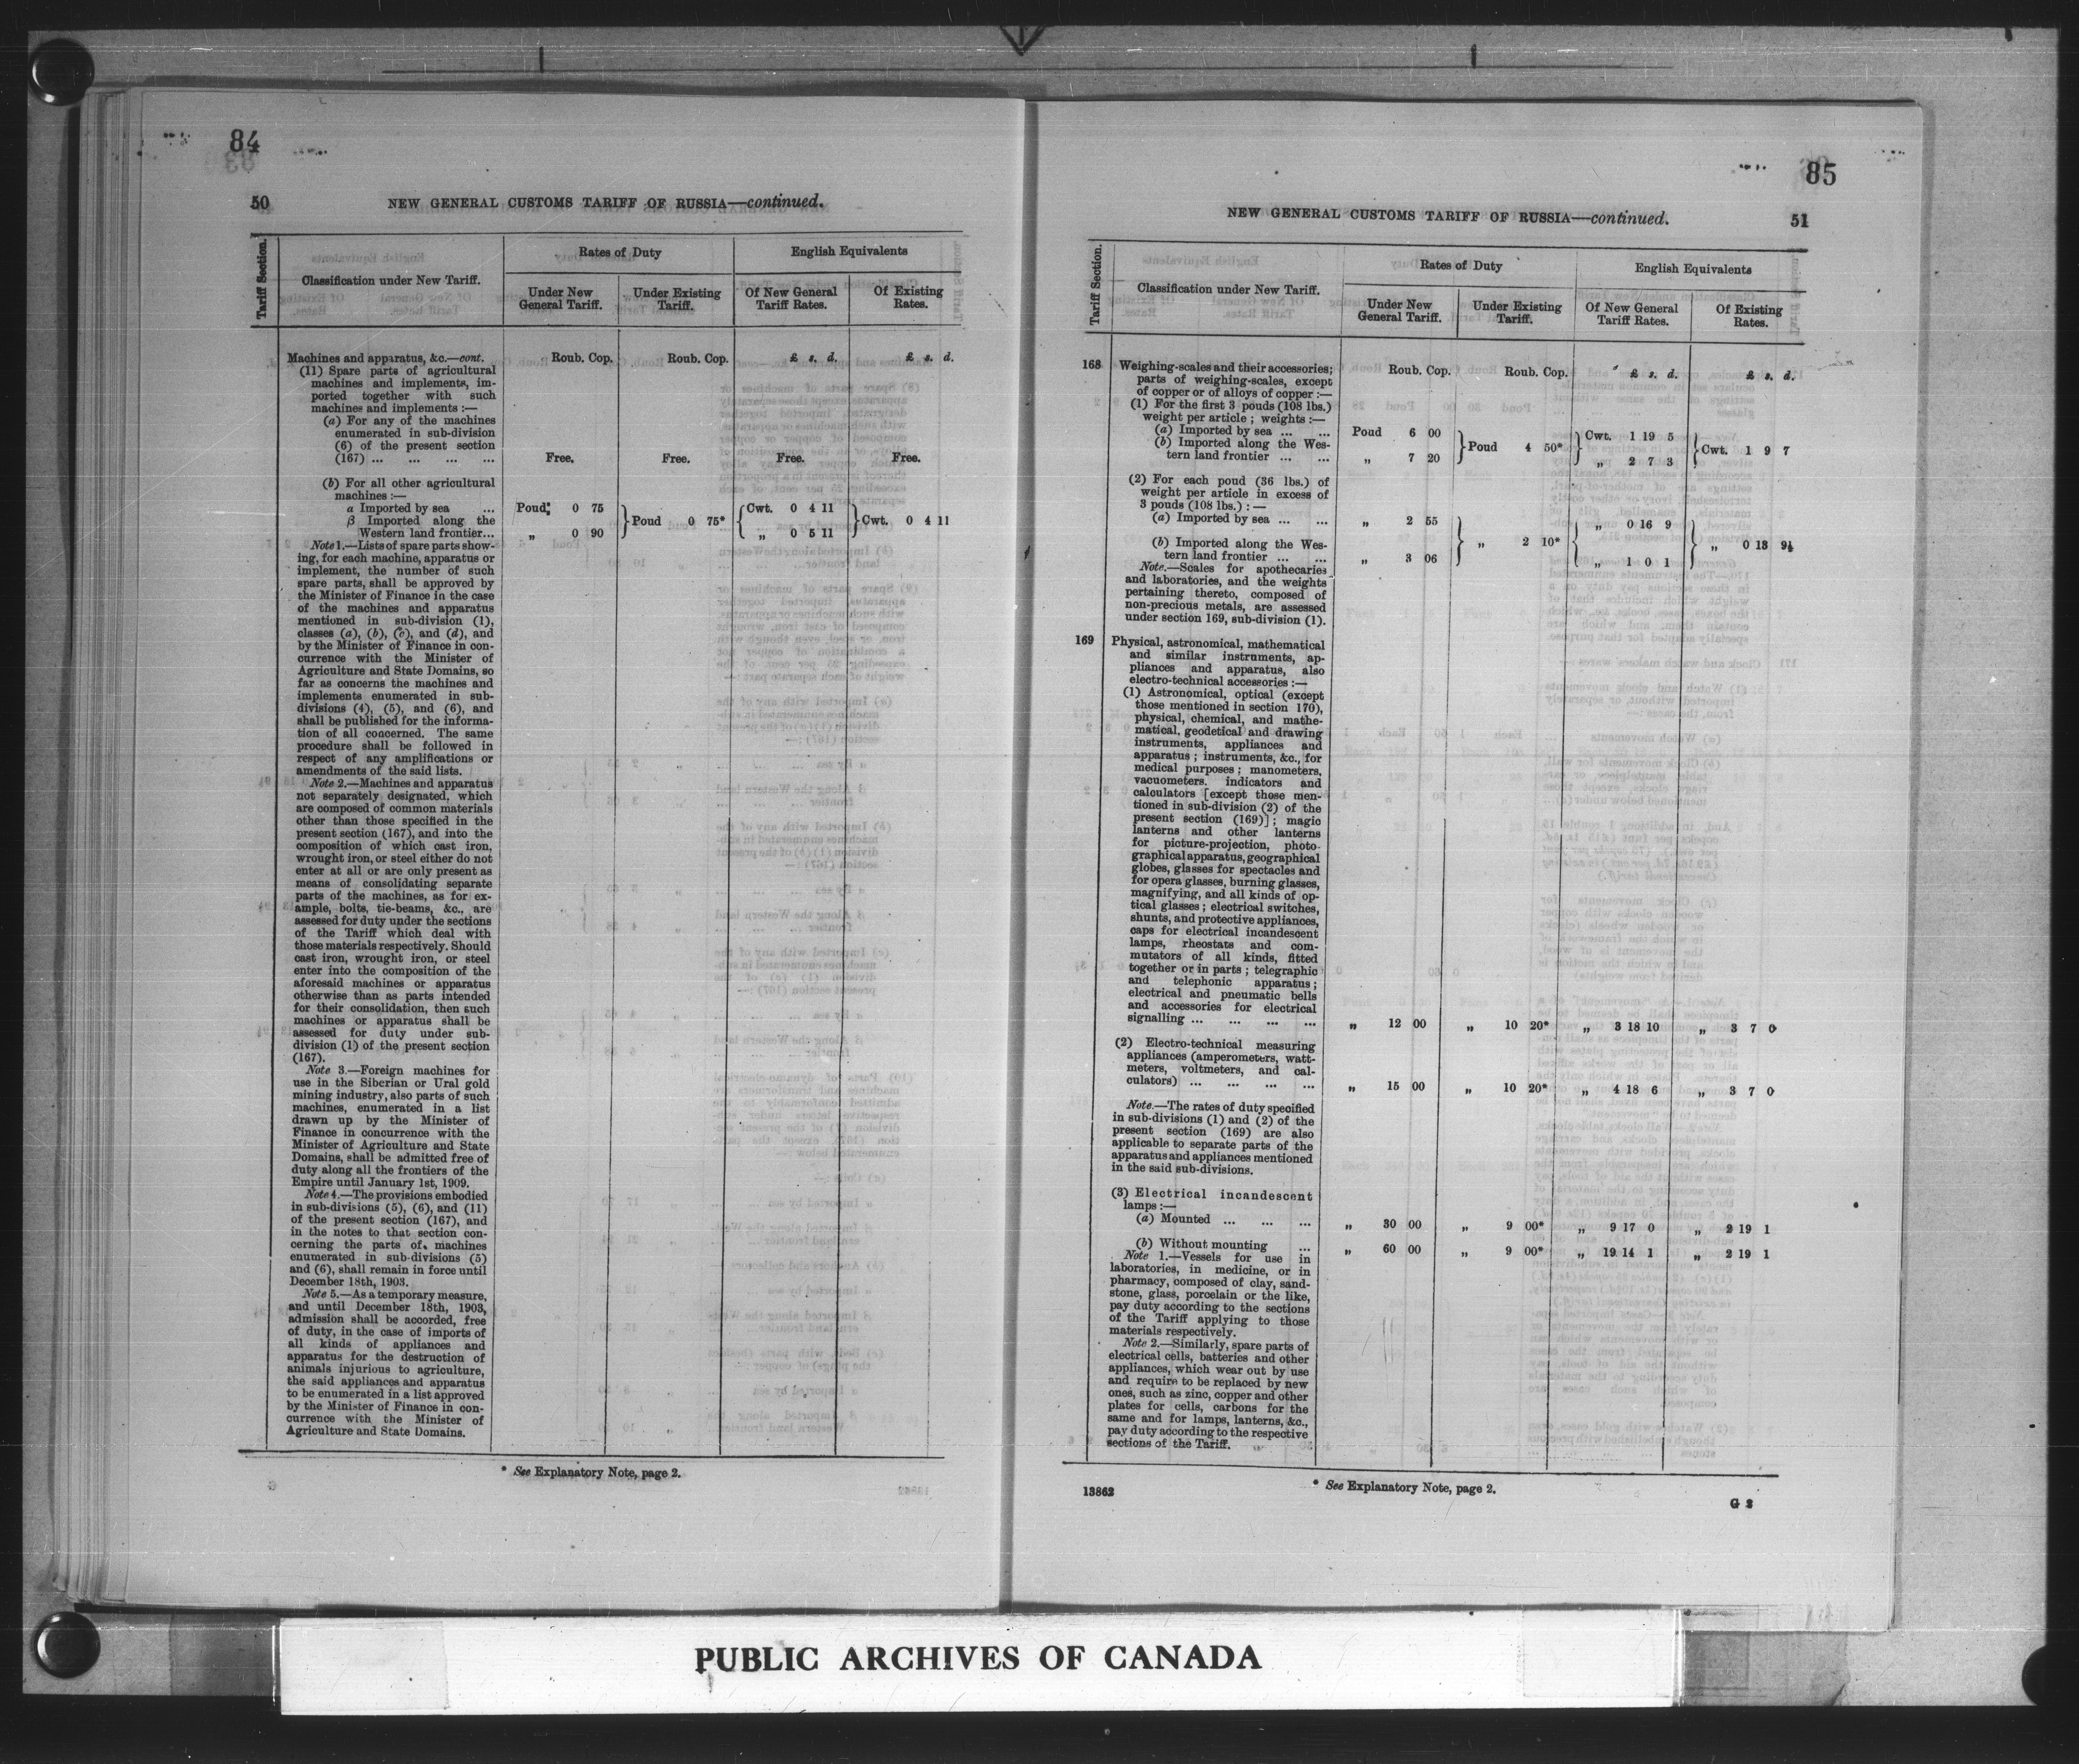 84
50
NEW GENERAL CUSTOMS TARIFF OF RUSSIA—continued.
Tariff Section.
Classification under New Tariff.
Rates of Duty
English Equivalents
Under New General Tariff.
Under Existing Tariff.
Of New General Tariff Rates.
Of Existing Rates.
Machines and apparatus, &c.—cont.
Roub. Cop. Roub. Cop. £ s. d. £ s. d.
(11) Spare parts of agricultural
machines and implements, im-
ported together with such
machines and implements :—
(a) For any of the machines
enumerated in sub-division
(6) of the present section
(167) ... ... ... ... Free. Free. Free. Free.
(b) For all other agricultural
machines :—
a Imported by sea ... Poud 0 75 } Poud 0 75* { Cwt. 0 4 11 } Cwt. 0 4 11
β Imported along the
Western land frontier... „ 0 90 „ 0 5 11
Note 1.—Lists of spare parts show-
ing, for each machine, apparatus or
implement, the number of such
spare parts, shall be approved by
the Minister of Finance in the case
of the machines and apparatus
mentioned in sub-division (1),
classes (a), (b), (c), and (d), and
by the Minister of Finance in con-
currence with the Minister of
Agriculture and State Domains, so
far as concerns the machines and
implements enumerated in sub-
divisions (4), (5), and (6), and
shall be published for the informa-
tion of all concerned. The same
procedure shall be followed in
respect of any amplifications or
amendments of the said lists.
Note 2.—Machines and apparatus
not separately designated, which
are composed of common materials
other than those specified in the
present section (167), and into the
composition of which cast iron,
wrought iron, or steel either do not
enter at all or are only present as
means of consolidating separate
parts of the machines, as for ex-
ample, bolts, tie-beams, &c., are
assessed for duty under the sections
of the Tariff which deal with
those materials respectively. Should
cast iron, wrought iron, or steel
enter into the composition of the
aforesaid machines or apparatus
otherwise than as parts intended
for their consolidation, then such
machines or apparatus shall be
assessed for duty under sub-
division (1) of the present section
(167).
Note 3.—Foreign machines for
use in the Siberian or Ural gold
mining industry, also parts of such
machines, enumerated in a list
drawn up by the Minister of
Finance in concurrence with the
Minister of Agriculture and State
Domains, shall be admitted free of
duty along all the frontiers of the
Empire until January 1st, 1909.
Note 4.—The provisions embodied
in sub-divisions (5), (6), and (11)
of the present section (167), and
in the notes to that section con-
cerning the parts of machines
enumerated in sub-divisions (5)
and (6), shall remain in force until
December 18th, 1903.
Note 5.—As a temporary measure,
and until December 18th, 1903,
admission shall be accorded, free
of duty, in the case of imports of
all kinds of appliances and
apparatus for the destruction of
animals injurious to agriculture,
the said appliances and apparatus
to be enumerated in a list approved
by the Minister of Finance in con-
currence with the Minister of
Agriculture and State Domains.
* See Explanatory Note, page 2.
85
NEW GENERAL CUSTOMS TARIFF OF RUSSIA—continued.
51
Tariff Section.
Classification under New Tariff.
Rates of Duty
English Equivalents
Under New General Tariff.
Under Existing Tariff.
Of New General Tariff Rates.
Of Existing Rates.
Roub. Cop. Roub. Cop. £ s. d. £ s. d.
168 Weighing-scales and their accessories;
parts of weighing-scales, except
of copper or of alloys of copper :—
(1) For the first 3 pouds (108 lbs.)
weight per article ; weights :—
(a) Imported by sea ... ... Poud 6 00 } Poud 4 50* } Cwt. 1 19 5 } Cwt. 1 9 7
(b) Imported along the Wes-
tern land frontier ... ... „ 7 20 „ 2 7 3
(2) For each poud (36 lbs.) of
weight per article in excess of
3 pouds (108 lbs.) :—
(a) Imported by sea ... ... „ 2 55 } „ 2 10* { „ 0 16 9 } „ 0 13 9½
(b) Imported along the Wes-
tern land frontier ... ... „ 3 06 „ 1 0 1
Note.—Scales for apothecaries
and laboratories, and the weights
pertaining thereto, composed of
non-precious metals, are assessed
under section 169, sub-division (1).
169 Physical, astronomical, mathematical
and similar instruments, ap-
pliances and apparatus, also
electro-technical accessories :—
(1) Astronomical, optical (except
those mentioned in section 170),
physical, chemical, and mathe-
matical, geodetical and drawing
instruments, appliances and
apparatus ; instruments, &c., for
medical purposes ; manometers,
vacuometers, indicators and
calculators [except those men-
tioned in sub-division (2) of the
present section (169)] ; magic
lanterns and other lanterns
for picture-projection, photo-
graphical apparatus, geographical
globes, glasses for spectacles and
for opera glasses, burning glasses,
magnifying, and all kinds of op-
tical glasses ; electrical switches,
shunts, and protective appliances,
caps for electrical incandescent
lamps, rheostats and com-
mutators of all kinds, fitted
together or in parts ; telegraphic
and telephonic apparatus ;
electrical and pneumatic bells
and accessories for electrical
signalling ... ... ... ... „ 12 00 „ 10 20* „ 3 18 10 „ 3 7 0
(2) Electro-technical measuring
appliances (amperometers, watt-
meters, voltmeters, and cal-
culators) ... ... ... ... „ 15 00 „ 10 20* „ 4 18 6 „ 3 7 0
Note.—The rates of duty specified
in sub-divisions (1) and (2) of the
present section (169) are also
applicable to separate parts of the
apparatus and appliances mentioned
in the said sub-divisions.
(3) Electrical incandescent
lamps :—
(a) Mounted ... ... ... „ 30 00 „ 9 00* „ 9 17 0 „ 2 19 1
(b) Without mounting ... „ 60 00 „ 9 00* „ 19 14 1 „ 2 19 1
Note 1.—Vessels for use in
laboratories, in medicine, or in
pharmacy, composed of clay, sand-
stone, glass, porcelain or the like,
pay duty according to the sections
of the Tariff applying to those
materials respectively.
Note 2.—Similarly, spare parts of
electrical cells, batteries and other
appliances, which wear out by use
and require to be replaced by new
ones, such as zinc, copper and other
plates for cells, carbons for the
same and for lamps, lanterns, &c.,
pay duty according to the respective
sections of the Tariff.
* See Explanatory Note, page 2.
13862
G 2
PUBLIC ARCHIVES OF CANADA